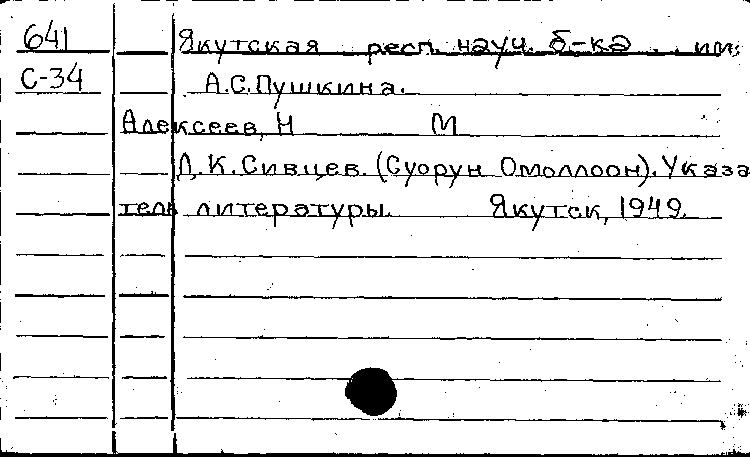 641 Якутская респ. науч. б-ка им.
С-34 А.С.Пушкина.
Алексеев, Н М
Д.К.Сивцев. (Суорун Омоллоон). Указа
тель литературы. Якутск, 1949.